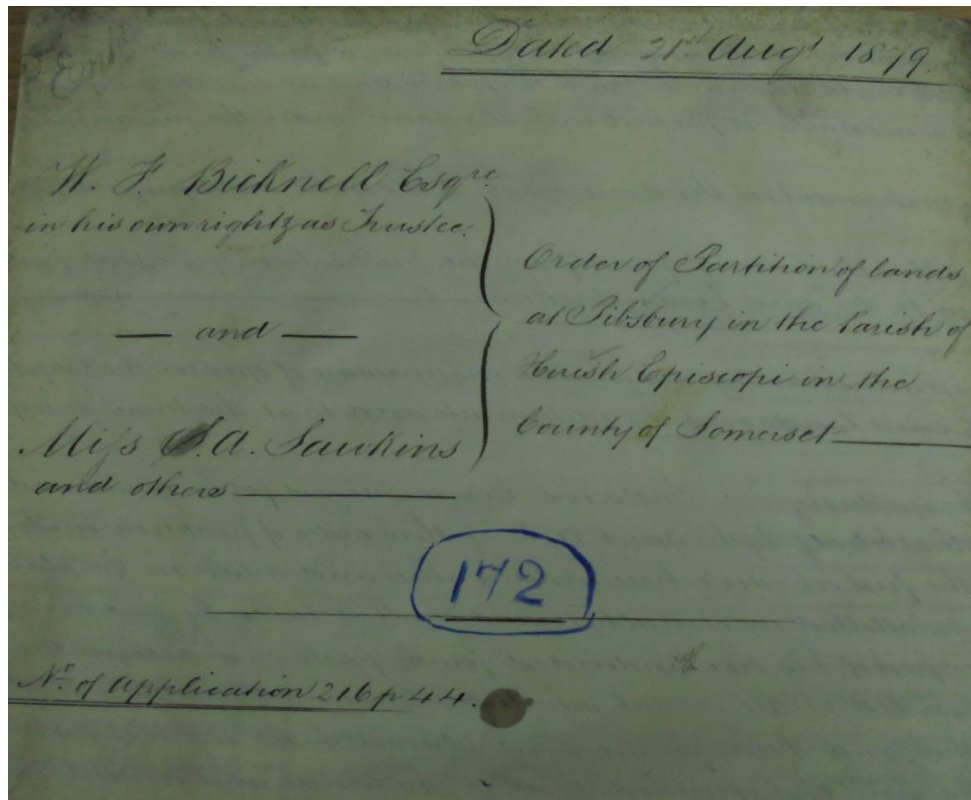 Dated 21st Augt 1879.
W. F. Bicknell Esqre
in his own right & as Trustee.
and
Miss S. A. Sawkins
and others
Order of Partition of lands
at Pibsbury in the Parish of
Huish Episcopi in the
County of Somerset
172
No. of Application 216 p 44.